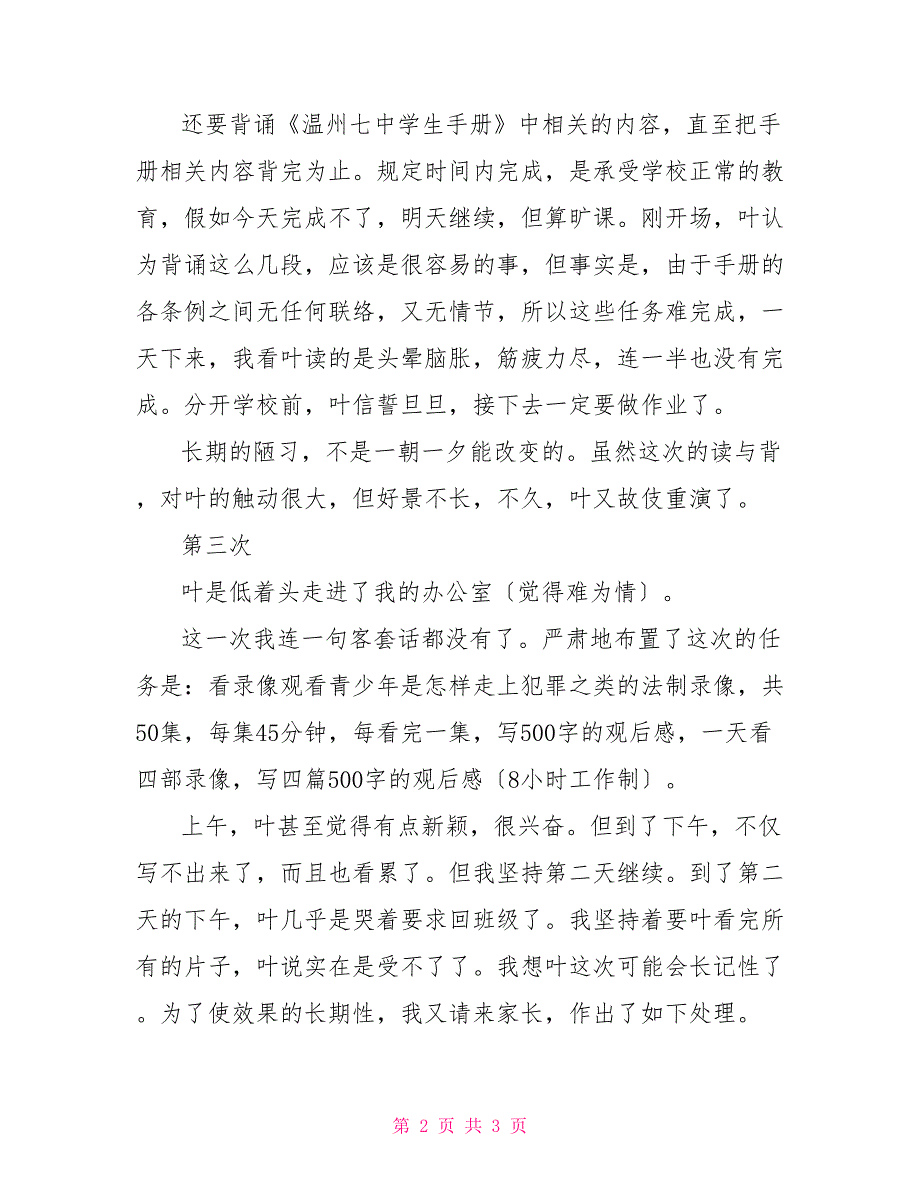 还要背诵《温州七中学生手册》中相关的内容，直至把手
册相关内容背完为止。规定时间内完成，是承受学校正常的教
育，假如今天完成不了，明天继续，但算旷课。刚开场，叶认
为背诵这么几段，应该是很容易的事，但事实是，由于手册的
各条例之间无任何联络，又无情节，所以这些任务难完成，一
天下来，我看叶读的是头晕脑胀，筋疲力尽，连一半也没有完
成。分开学校前，叶信誓旦旦，接下去一定要做作业了。
长期的陋习，不是一朝一夕能改变的。虽然这次的读与背
，对叶的触动很大，但好景不长，不久，叶又故伎重演了。
第三次
叶是低着头走进了我的办公室〔觉得难为情〕。
这一次我连一句客套话都没有了。严肃地布置了这次的任
务是：看录像观看青少年是怎样走上犯罪之类的法制录像，共
50集，每集45分钟，每看完一集，写500字的观后感，一天看
四部录像，写四篇500字的观后感〔8小时工作制〕。
上午，叶甚至觉得有点新颖，很兴奋。但到了下午，不仅
写不出来了，而且也看累了。但我坚持第二天继续。到了第二
天的下午，叶几乎是哭着要求回班级了。我坚持着要叶看完所
有的片子，叶说实在是受不了了。我想叶这次可能会长记性了
。为了使效果的长期性，我又请来家长，作出了如下处理。
第 2 页 共 3 页